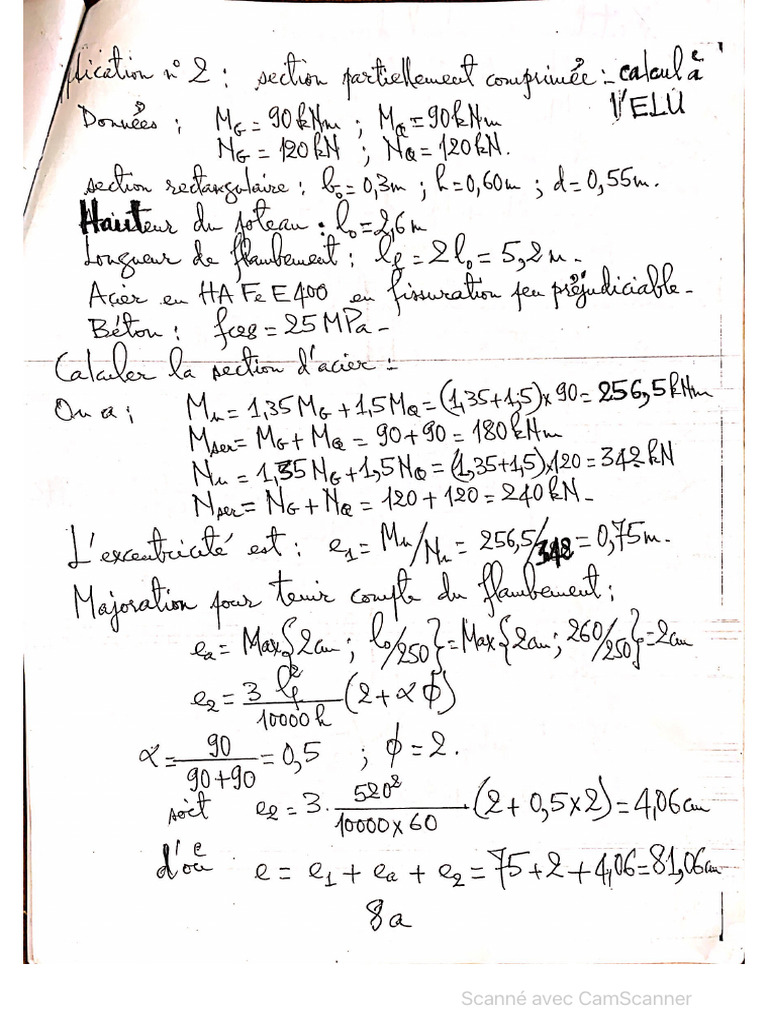 plication n° 2 : section partiellement comprimée :- calcul à
l'ELU
Données : MG = 90 kNm ; MQ = 90 kNm
NG = 120 kN ; NQ = 120 kN.
section rectangulaire : b₀ = 0,3m ; h = 0,60m ; d = 0,55m.
Hauteur du poteau : l₀ = 2,6 m
Longueur de flambement : lf = 2 l₀ = 5,2 m.
Acier en HA Fe E400 en fissuration peu préjudiciable -
Béton : fc28 = 25 MPa -
Calculer la section d'acier :-
On a : Mu = 1,35 MG + 1,5 MQ = (1,35+1,5) x 90 = 256,5 kNm
Mser = MG + MQ = 90 + 90 = 180 kNm
Nu = 1,35 NG + 1,5 NQ = (1,35+1,5) x 120 = 342 kN
Nser = NG + NQ = 120 + 120 = 240 kN -
L'excentricité est : e₁ = Mu/Nu = 256,5/342 = 0,75 m.
Majoration pour tenir compte du flambement :
ea = Max{2cm ; l₀/250} = Max{2cm ; 260/250} = 2cm
e₂ = 3 lf²/10000 h (2 + α ϕ)
α = 90/90+90 = 0,5 ; ϕ = 2.
soit e₂ = 3 . 520²/10000 x 60 (2 + 0,5 x 2) = 4,06 cm
d'où e = e₁ + ea + e₂ = 75 + 2 + 4,06 = 81,06 cm
8a
Scanné avec CamScanner